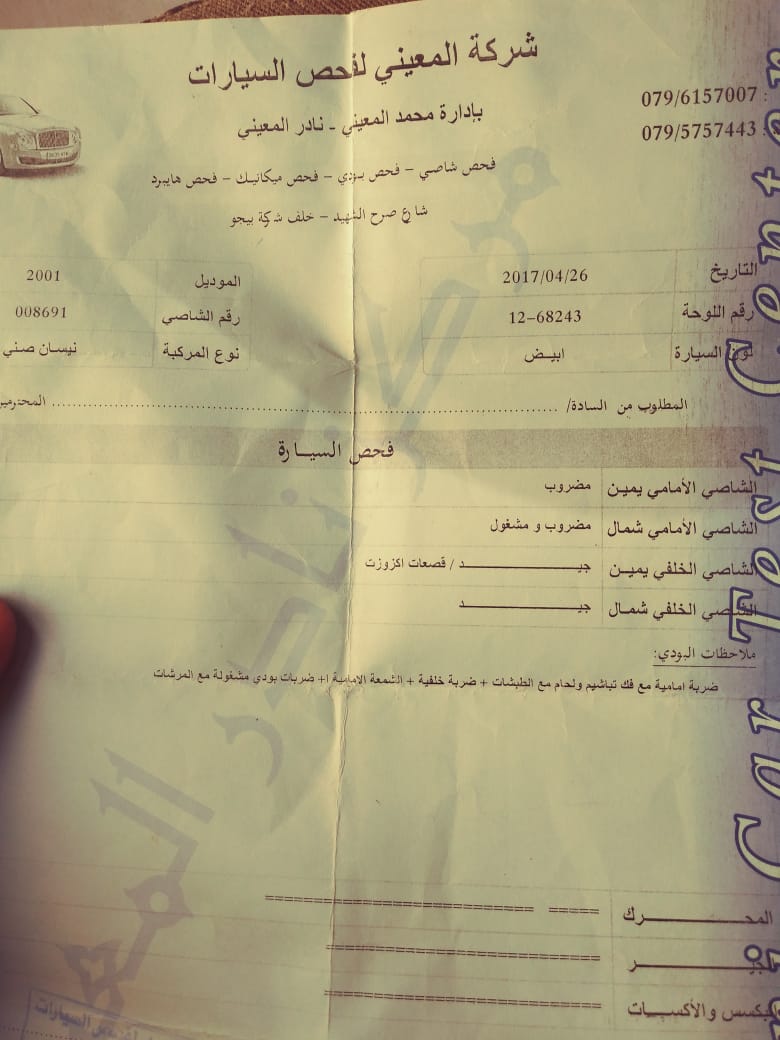 شركة المعيني لفحص السيارات
079/6157007 :
بإدارة محمد المعيني ـ نادر المعيني
079/5757443 :
فحص شاصي – فحص بـودي – فحص ميكانيـك – فحص هايبرد
شارع صرح الشهيد – خلف شركة بيجو
التاريخ 2017/04/26
الموديل 2001
رقم اللوحة 12-68243
رقم الشاصي 008691
لون السيارة ابيـض
نوع المركبة نيسان صني
المطلوب من السادة/ ........................................................ المحترمين
فحص السيــارة
الشاصي الأمامي يميـن مضروب
الشاصي الأمامي شمال مضروب و مشغول
الشاصي الخلفي يميـن جيـــــــــــــــــد / قصعات اكزوزت
الشاصي الخلفي شمـال جيـــــــــــــــــد
ملاحظات البودي:
ضربة امامية مع فك تباشيم ولحام مع الطبشات + ضربة خلفية + الشمعة الامامية ا+ ضربات بودي مشغولة مع المرشات
المحــــــــرك ===== ==========================
الجيـــــــر ===========================
البكسس والأكسيــات ===========================
Car Test Center
مركز نادر المع